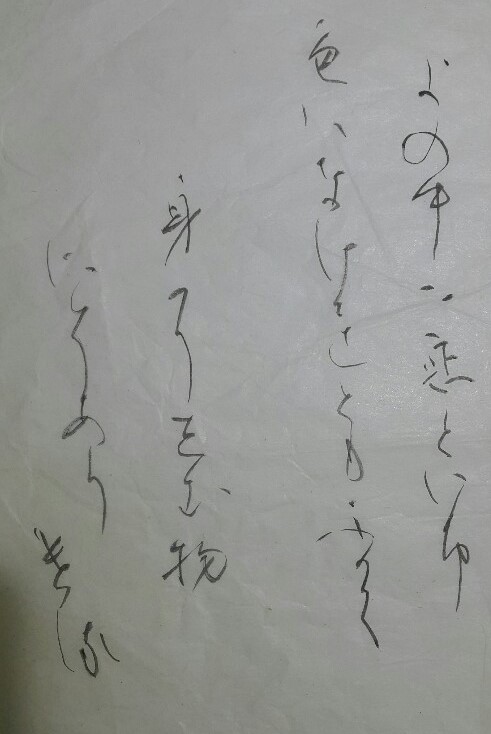 よの中に恋といふ
色はなけれともふかく
身にしむ物
にそありける